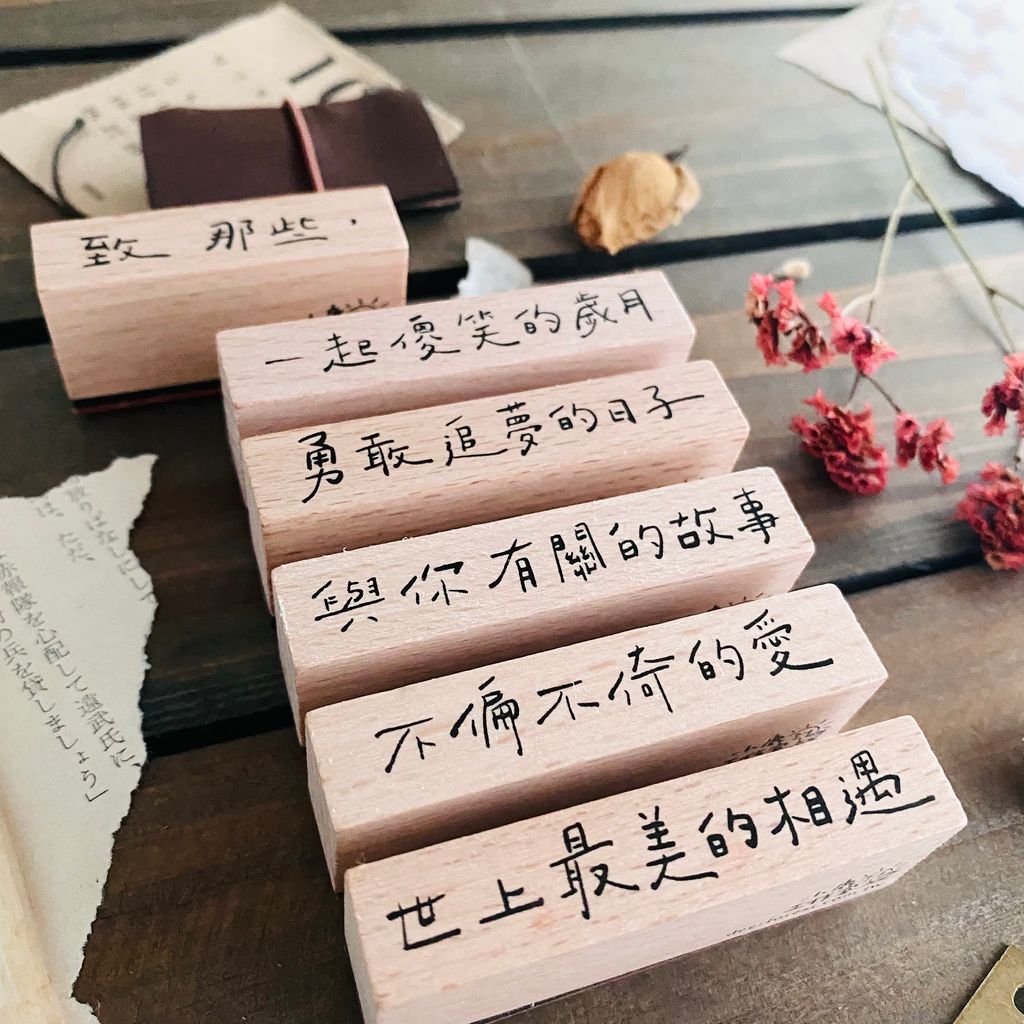 致 那些，
一起傻笑的歲月
勇敢追夢的日子
與你有關的故事
不偏不倚的愛
世上最美的相遇
は、ただ、
赤報隊を心配して遠武氏に、
の兵を貸しましょう」